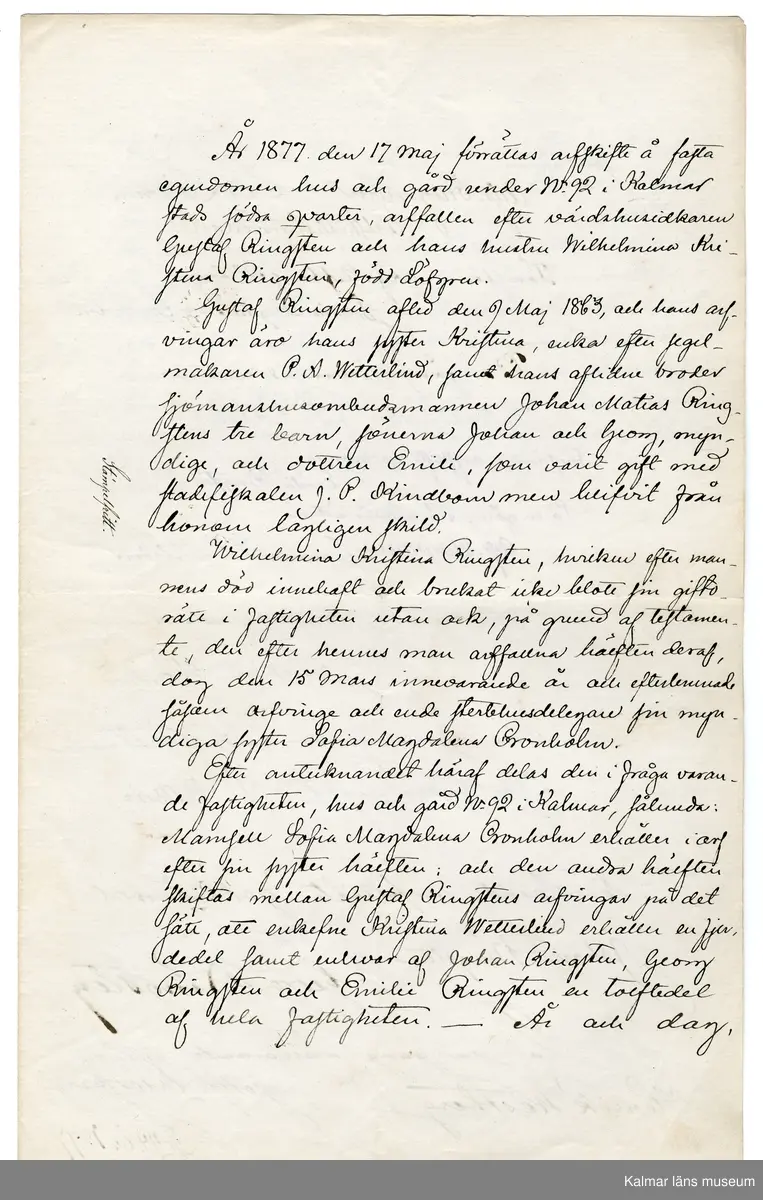 År 1877 den 17 Maj förrättas arfskifte å fasta
egendomen hus och gård under No. 92 i Kalmar
stads södra qvarter, arffallen efter värdshusidkaren
Gustaf Ringsten och hans hustru Wilhelmina Kri-
stina Ringsten, född Löfgren.
Gustaf Ringsten afled den 9 Maj 1863, och hans arf-
vingar äro hans syster Kristina, enka efter segel-
makaren P. A. Wetterlind, samt hans aflidne broder
sjömanshusombudsmannen Johan Matias Ring-
stens tre barn, sönerna Johan och Georg, myn-
dige, och dottren Emili, som varit gift med
stadsfiskalen J. P. Kindbom men blifvit från
honom lagligen skild.
Stämpelfritt.
Wilhelmina Kristina Ringsten, hvilken efter man-
nens död innehaft och brukat icke blott sin gifto-
rätt i fastigheten utan ock, på grund af testamen-
te, den efter hennes man arffallna hälften deraf,
dog den 15 Mars innevarande år och efterlemnade
såsom arfvinge och ende sterbhusdelegare sin myn-
diga syster Sofia Magdalena Cronholm.
Efter antecknandet häraf delas den i fråga varan-
de fastigheten, hus och gård No. 92 i Kalmar, sålunda:
Mamsell Sofia Magdalena Cronholm erhåller i arf
efter sin syster hälften; och den andra hälften
skiftas mellan Gustaf Ringstens arfvingar på det
sätt, att enkefru Kristina Wetterlind erhåller en fjer-
dedel samt enhvar af Johan Ringsten, Georg
Ringsten och Emilie Ringsten en tolftedel
af hela fastigheten. — År och dag,
Kalmar läns museum